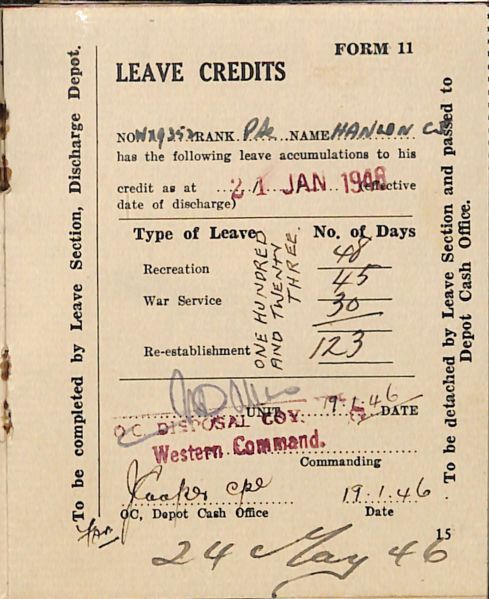 FORM 11
LEAVE CREDITS
NO WX9352 RANK Pte NAME HANLON C
has the following leave accumulations to his
credit as at 21 JAN 1946 (effective
date of discharge)
Type of Leave No. of Days
Recreation 48
War Service 45
30
Re-establishment 123
ONE HUNDRED
AND TWENTY
THREE.
UNIT 19.1.46 DATE
OC DISPOSAL COY.
Western Command.
Commanding
Cooper Cpl 19.1.46
OC, Depot Cash Office Date
for
15
24 May 46
To be completed by Leave Section, Discharge Depot.
To be detached by Leave Section and passed to
Depot Cash Office.